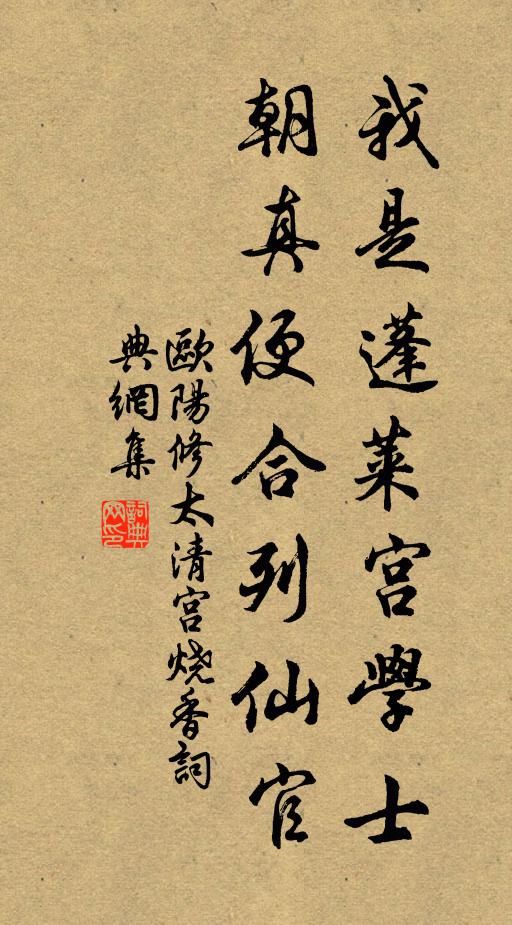 我是蓬莱宫學士
朝真便合列仙官
歐陽修太清宫燒香詞
典網集
詞典網印